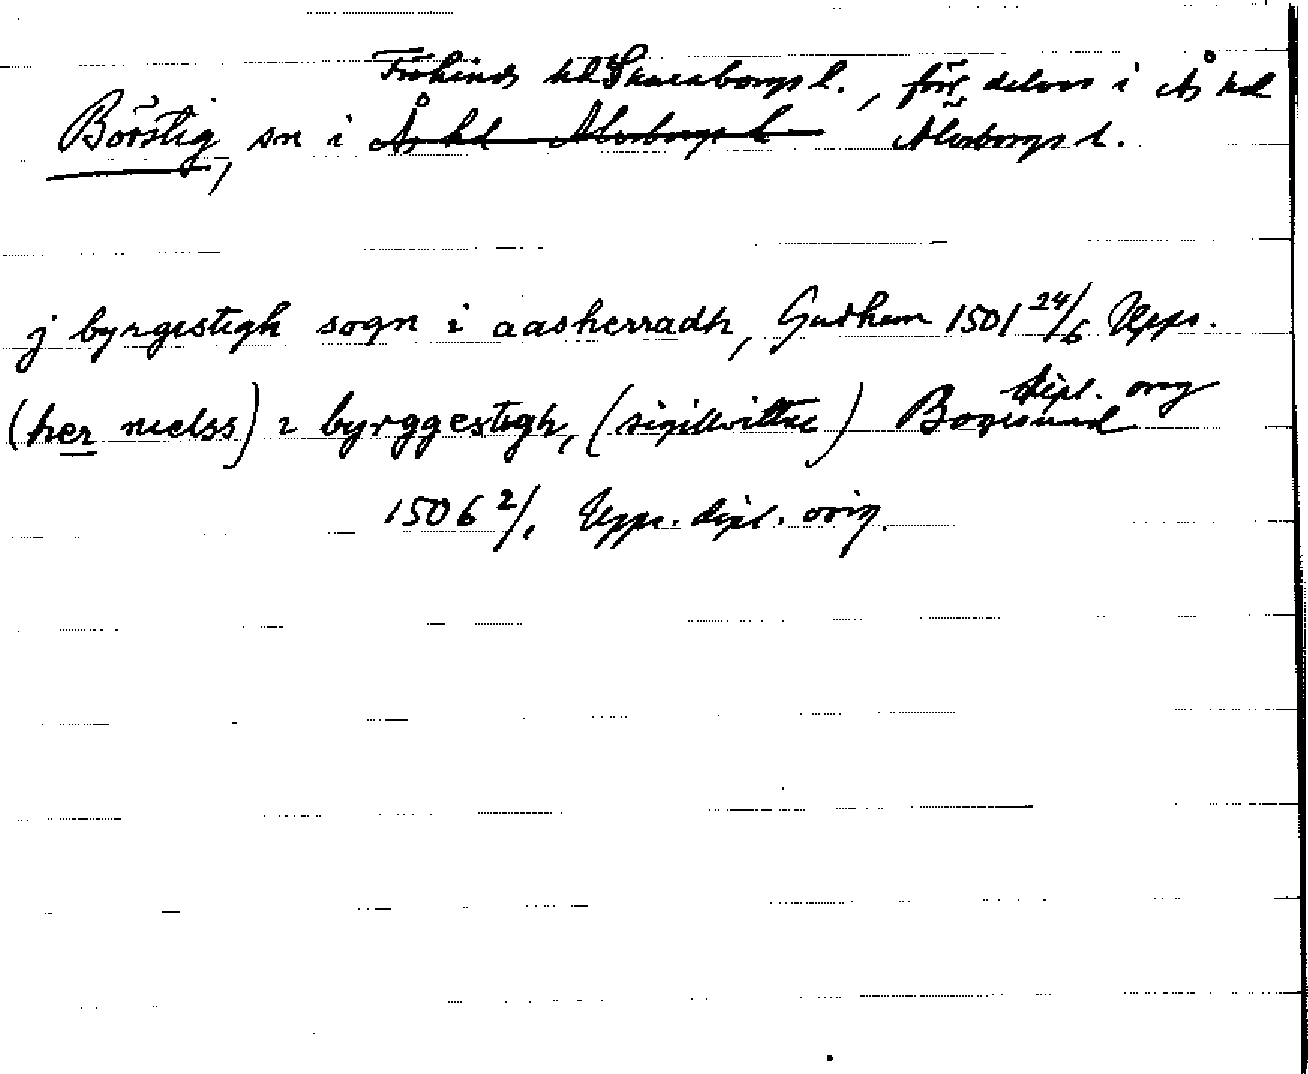 Frökinds hd Skaraborgs l., förr delvis i Ås hd
Börstig, sn i Ås hd Älvsborgs l. Älvsborgs l.
j byrgistigh sogn i aasherradh, Gudhem 1501 24/6 Upps.
dipl. orig
(her nielss) i byrggestigh, (sigillvittne) Bogesund
1506 2/1 Upps. dipl. orig.